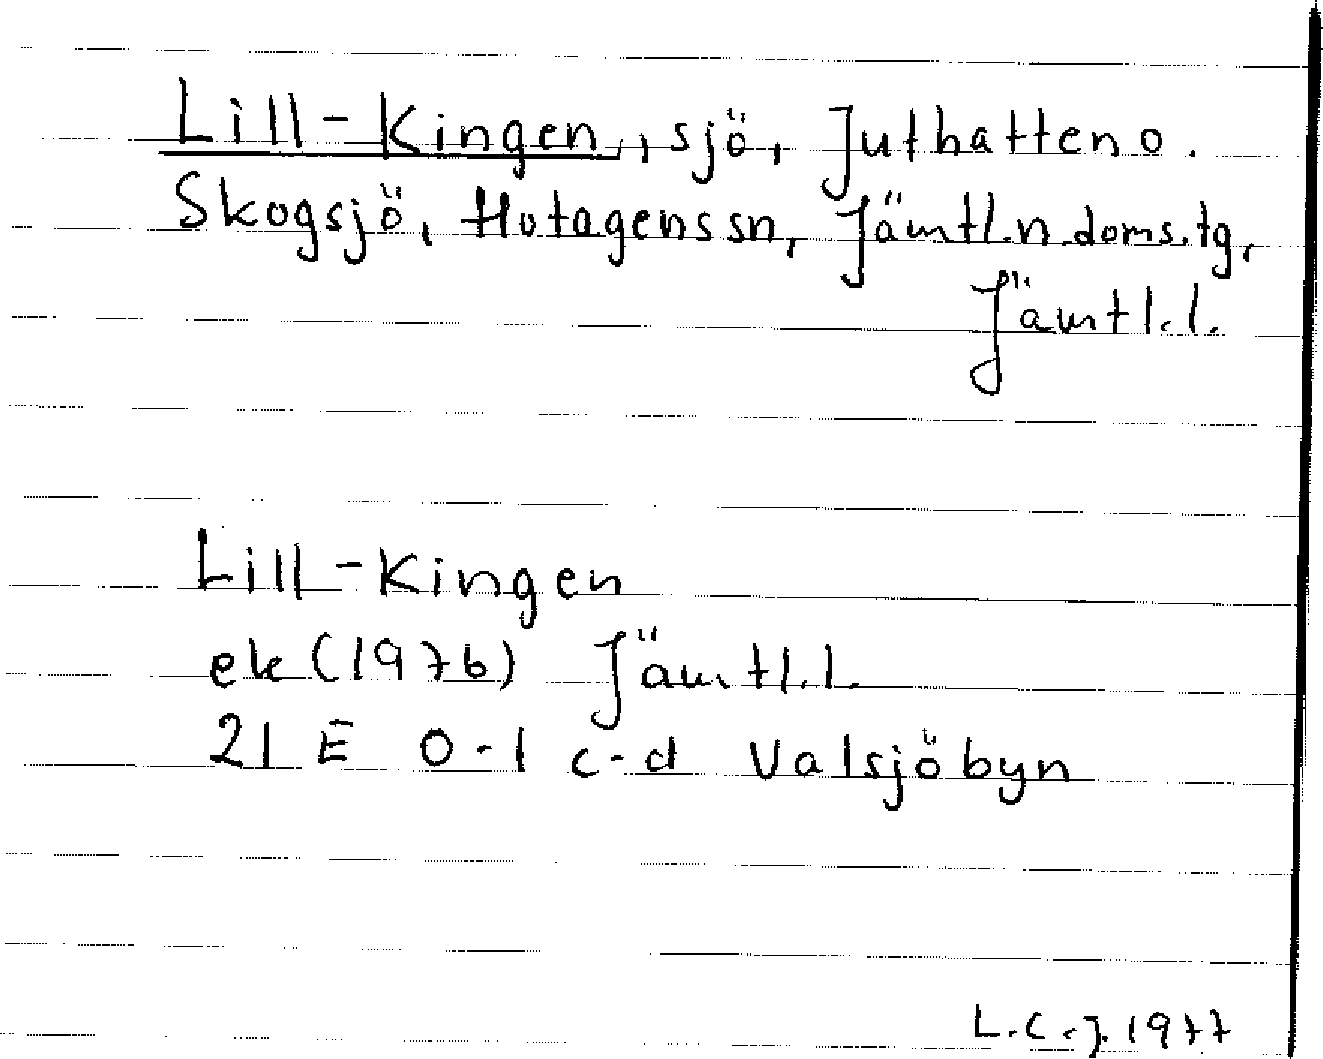 Lill-Kingen, sjö, Juthatten o.
Skogsjö, Hotagens sn, Jämtl. n. doms. tg,
Jämtl. l.
Lill-Kingen
ek (1976) Jämtl. l.
21 E 0-1 c-d Valsjöbyn
L.C.J. 1977